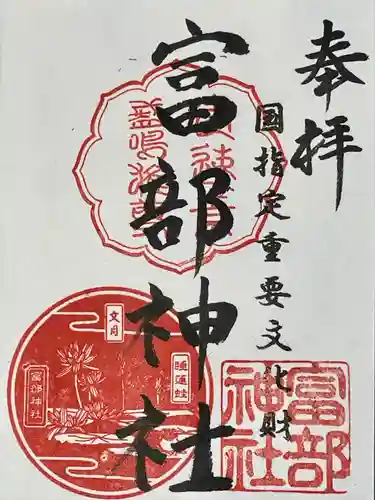 奉拝
國指定重要文化財
富部神社
文月
睡蓮蛙
富部神社
富部
神社